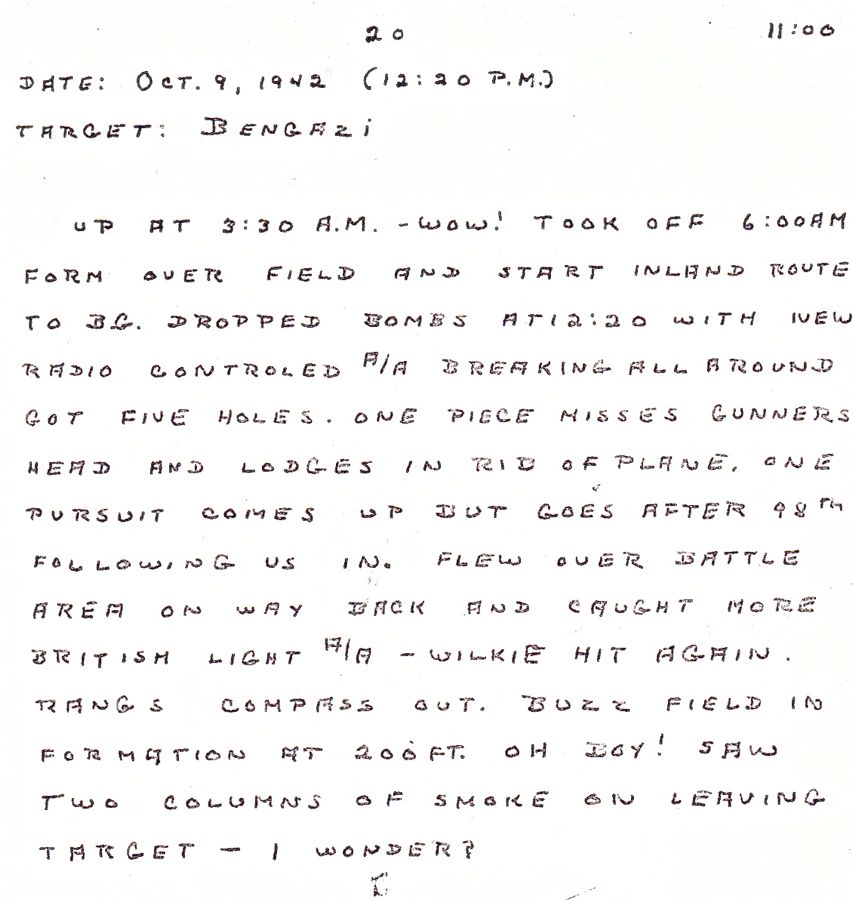 20 11:00
DATE: OCT. 9, 1942 (12:20 P.M.)
TARGET: BENGAZi
UP AT 3:30 A.M. - WOW! TOOK OFF 6:00AM
FORM OVER FIELD AND START INLAND ROUTE
TO BG. DROPPED BOMBS AT 12:20 WITH NEW
RADIO CONTROLED A/A BREAKING ALL AROUND
GOT FIVE HOLES. ONE PIECE MISSES GUNNERS
HEAD AND LODGES IN RIB OF PLANE. ONE
PURSUIT COMES UP BUT GOES AFTER 98TH
FOLLOWING US IN. FLEW OVER BATTLE
AREA ON WAY BACK AND CAUGHT MORE
BRITISH LIGHT A/A - WILKIE HIT AGAIN.
RANGS COMPASS OUT. BUZZ FIELD IN
FORMATION AT 200 FT. OH BOY! SAW
TWO COLUMNS OF SMOKE ON LEAVING
TARGET - I WONDER?